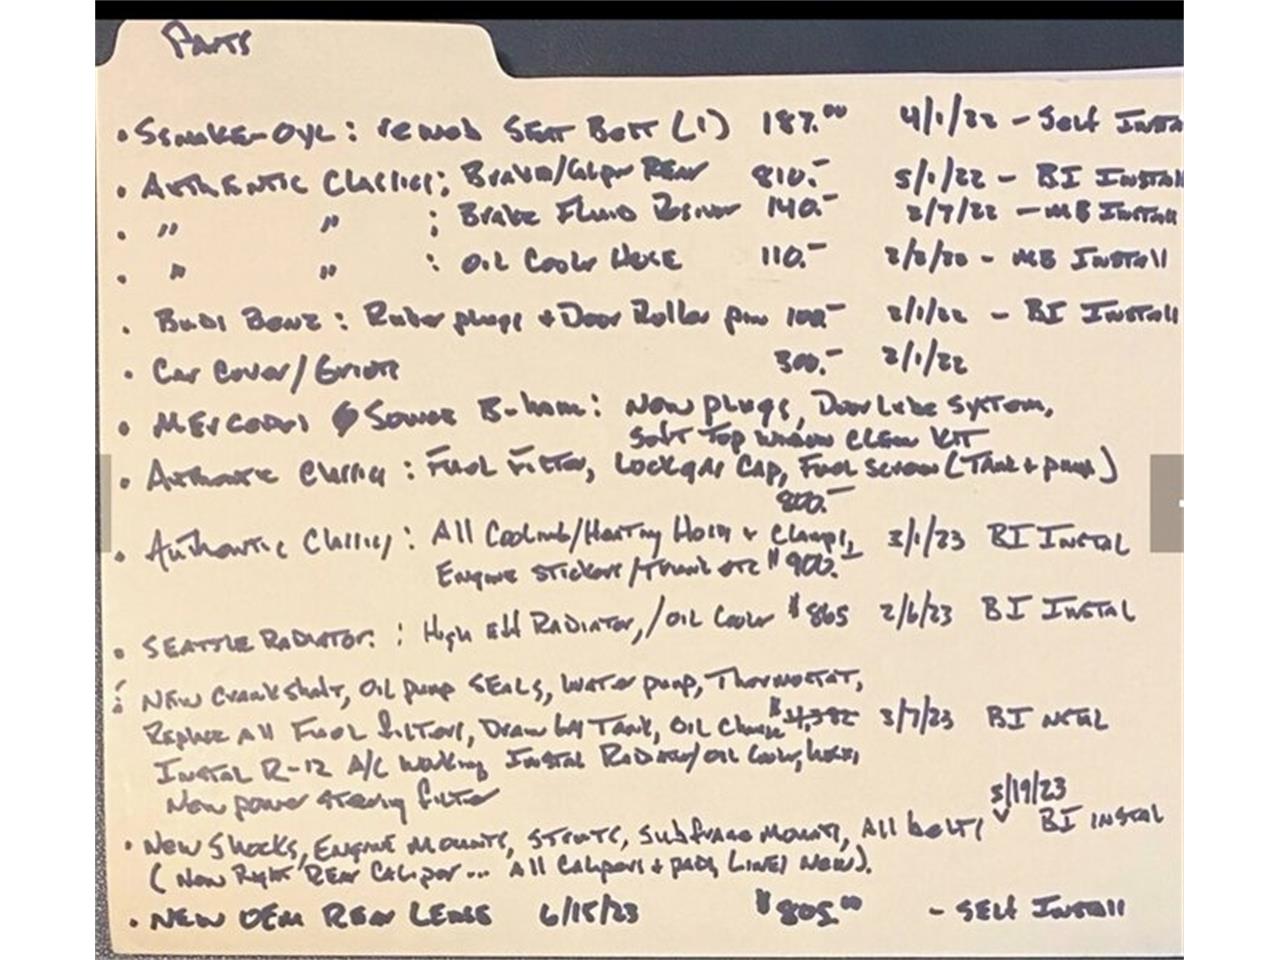 Parts
• Ssnake-Oyl: remob Seat Belt (1) 187.00 4/1/22 - Self Insta
• Authentic Classics; Brakes/Caliper Rear 810.- 5/1/22 - BI Install
• " " : Brake Fluid 140.- 2/7/22 - MB Install
• " " : Oil Cooler Hose 110.- - MB Install
• Budi Benz: Ruber plugs + Door Roller pin 100.- 2/1/22 - BI Install
• Car Cover/ 300.- 2/1/22
• Source B-ham: New plugs, Door Lube System,
Soft Top Window Clean Kit
• Authentic Classics: Fuel Filter, Lock gas Cap, Fuel Screen (Tank + pump)
800.-
• Authentic Classics: All Cooling/Heating Hoses + Clamps, 3/1/23 BI Instal
Engine Stickers/Trunk etc $900.-
• Seattle Radiator: : High eff Radiator,/Oil Cooler $865 2/6/23 BI Instal
New Crankshaft, Oil pump Seals, Water pump, Thermostat,
Replace All Fuel filters, Drain Gas Tank, Oil Change $4,382 3/7/23 BI
Instal R-12 A/C Working Instal Radiator/oil Cooler, hoses,
New power steering filter
5/19/23
• New Shocks, Engine Mounts, Struts, Subframe Mounts, All belts BI Instal
(New Right Rear Caliper... All Calipers + pads, Lines New).
• New OEM Rear Lense 6/15/23 $805.00 - Self Install